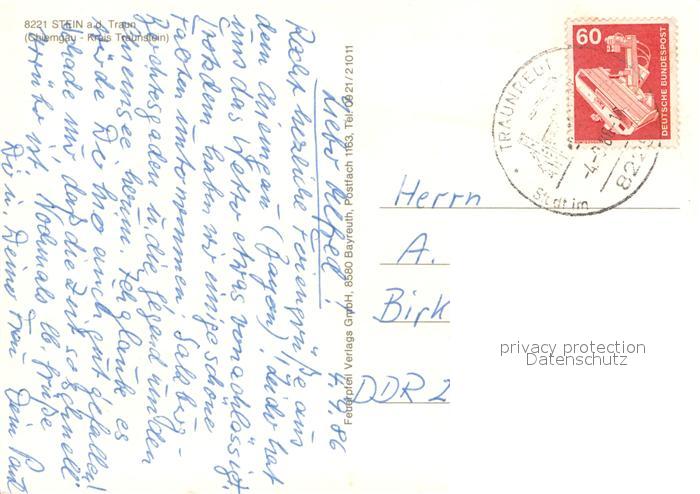 8221 STEIN a.d. Traun
(Chiemgau - Kreis Traunstein)
4.9.86
Lieber
Recht herzliche Feriengrüße aus
dem Chiemgau (Bayern). Leider hat
uns das Wetter etwas vernachlässigt,
trotzdem haben wir einige schöne
Fahrten unternommen. Salzburg,
Berchtesgaden u. die Gegend um den
Chiemsee herum. Ich glaube es
würde Dir hier auch gut gefallen!
Schade nur, daß die Zeit so schnell
vorüber ist. Nochmals lb. Grüße
Dir u. Deiner Frau Dein
Feuerpfeil Verlags GmbH, 8580 Bayreuth, Postfach 1163, Tel. 0921/21011
60
DEUTSCHE BUNDESPOST
TRAUNREUT
Stadt im
822
Herrn
A.
Birk
DDR 2
privacy protection
Datenschutz